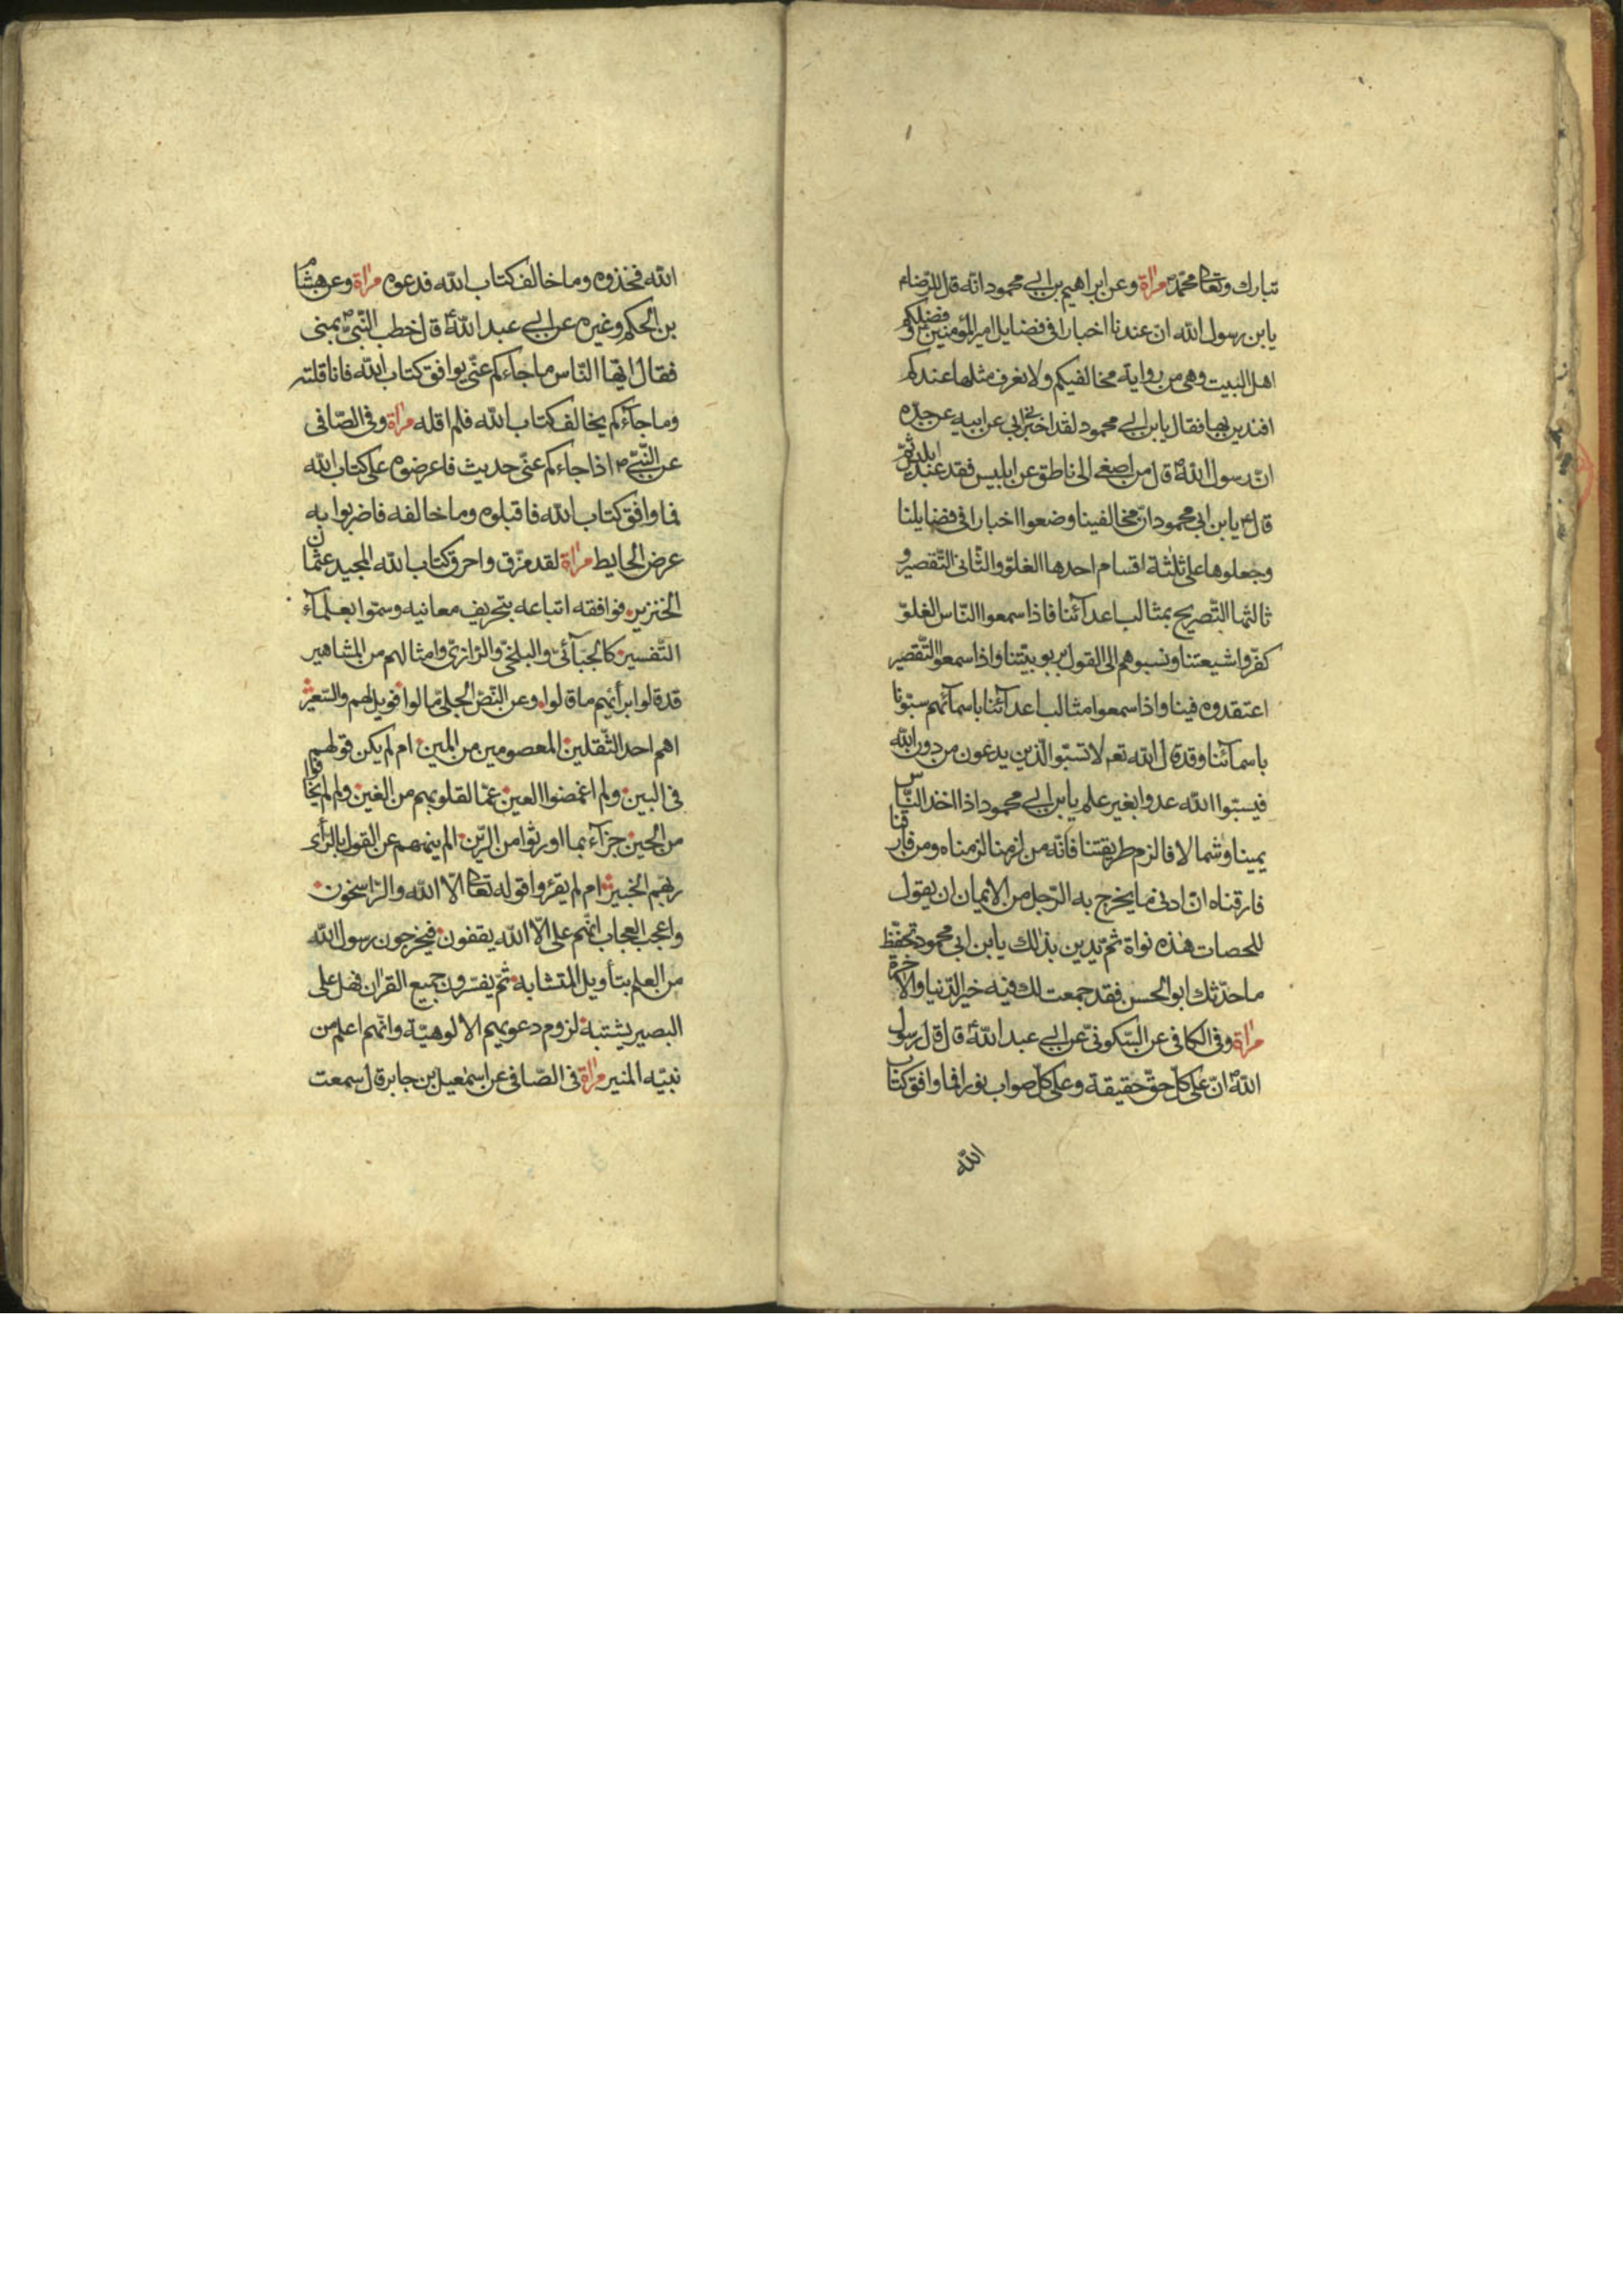 تبارك وتعالى محمّدؐ مرٰاة وعن ابراهيم بن ابي محمود انّه قل للرّضا ع
يابن رسول الله انّ عندنا اخبارا فى فضايل امير المؤمنين ع و فضلكم
اهل البيت وهى من رواية مخالفيكم ولا نعرف مثلها عندكم
افندين بها فقال يابن ابي محمود لقد اخبرنى ابى عن ابيه عن جدّه
انّ رسول اللهؐ قل من اصغى الى ناطق عن ابليس فقد عبد ابليس ثمّ
قل ع يابن ابى محمود انّ مخالفينا وضعوا اخبارا فى فضايلنا
وجعلوها على ثلٰثة اقسام احدها الغلوّ والثّانى التّقصير و
ثالثها التّصريح بمثالب اعدآئنا فاذا سمعوا النّاس الغلوّ
كفّروا شيعتنا ونسبوهم الى القول بربوبيّتنا واذا سمعوا التّقصير
اعتقدوه فينا واذا سمعوا مثالب اعدآئنا باسمآئهم سبّونا
باسمآئنا وقد قل الله تعم لا تسبّوا الّذين يدعون من دون الله
فيسبّوا الله عدوا بغير علم يابن ابي محمود اذا اخذ النّاس
يمينا وشمالا فالزم طريقتنا فانّه من لزمنا لزمناه ومن فارقنا
فارقناه انّ ادنى ما يخرج به الرّجل من الايمان ان يقول
للحصات هٰذه نواة ثمّ يدين بذلك يابن ابى محمود تحفّظ
ما حدّثتك ابو الحسن فقد جمعت لك فيه خير الدّنيا والاٰخرة
مرٰاة وفى الكافى عن السّكونىّ عن ابي عبد اللهؑ قال قل رسول
اللهؐ انّ على كلّ حقّ حقيقة وعلى كلّ صواب نورا فما وافق كتاب
الله
الله فخذوه وما خالف كتاب الله فدعوه مرٰاة وعن هشام
بن الحكم وغيره عن ابي عبد اللهؑ قل خطب النّبىّؐ بمنى
فقال ايّها النّاس ما جاءكم عنّى يوافق كتاب الله فانا قلته
وما جآءكم يخالف كتاب الله فلم اقله مرٰاة وفى الصّافى
عن النّبىّ ص اذا جاءكم عنّى حديث فاعرضوه على كتاب الله
فما وافق كتاب الله فاقبلوه وما خالفه فاضربوا به
عرض الحايط مرٰاة لقد مزّق واحرق كتاب الله المجيد عثمان
الخنزير فوافقه اتباعه بتحريف معانيه وسمّوا بعلمآء
التّفسير كالجبّآئىّ والبلخىّ والرّازىّ وامثالهم من المشاهير
قد قلوا برأئهم ما قلوا وعن النّصّ الجلىّ مالوا فويل لهم والسّعير
اهم احد الثّقلين المعصومين من المين ام لم يكن قولهم
فى البين ولم اغمضوا العين عمّا لقلوبهم من الغين ولم لم يخافوا
من الحين جزآء بما اورثوا من الرّين الم ينههم عن القول بالرّأى
ربّهم الخبير ام لم يقرؤا قوله تعالى الّا الله والرّاسخون
واعجب العجاب انّهم على الّا الله يقفون فيخرجون رسول الله
من العلم بتأويل المتشابه ثمّ يفسّرون جميع القراٰن فهل على
البصير يشتبه لزوم دعويهم الالوهيّة وانّهم اعلم من
نبيّه المنير مرٰاة فى الصّافى عن اسمٰعيل بن جابر قل سمعت